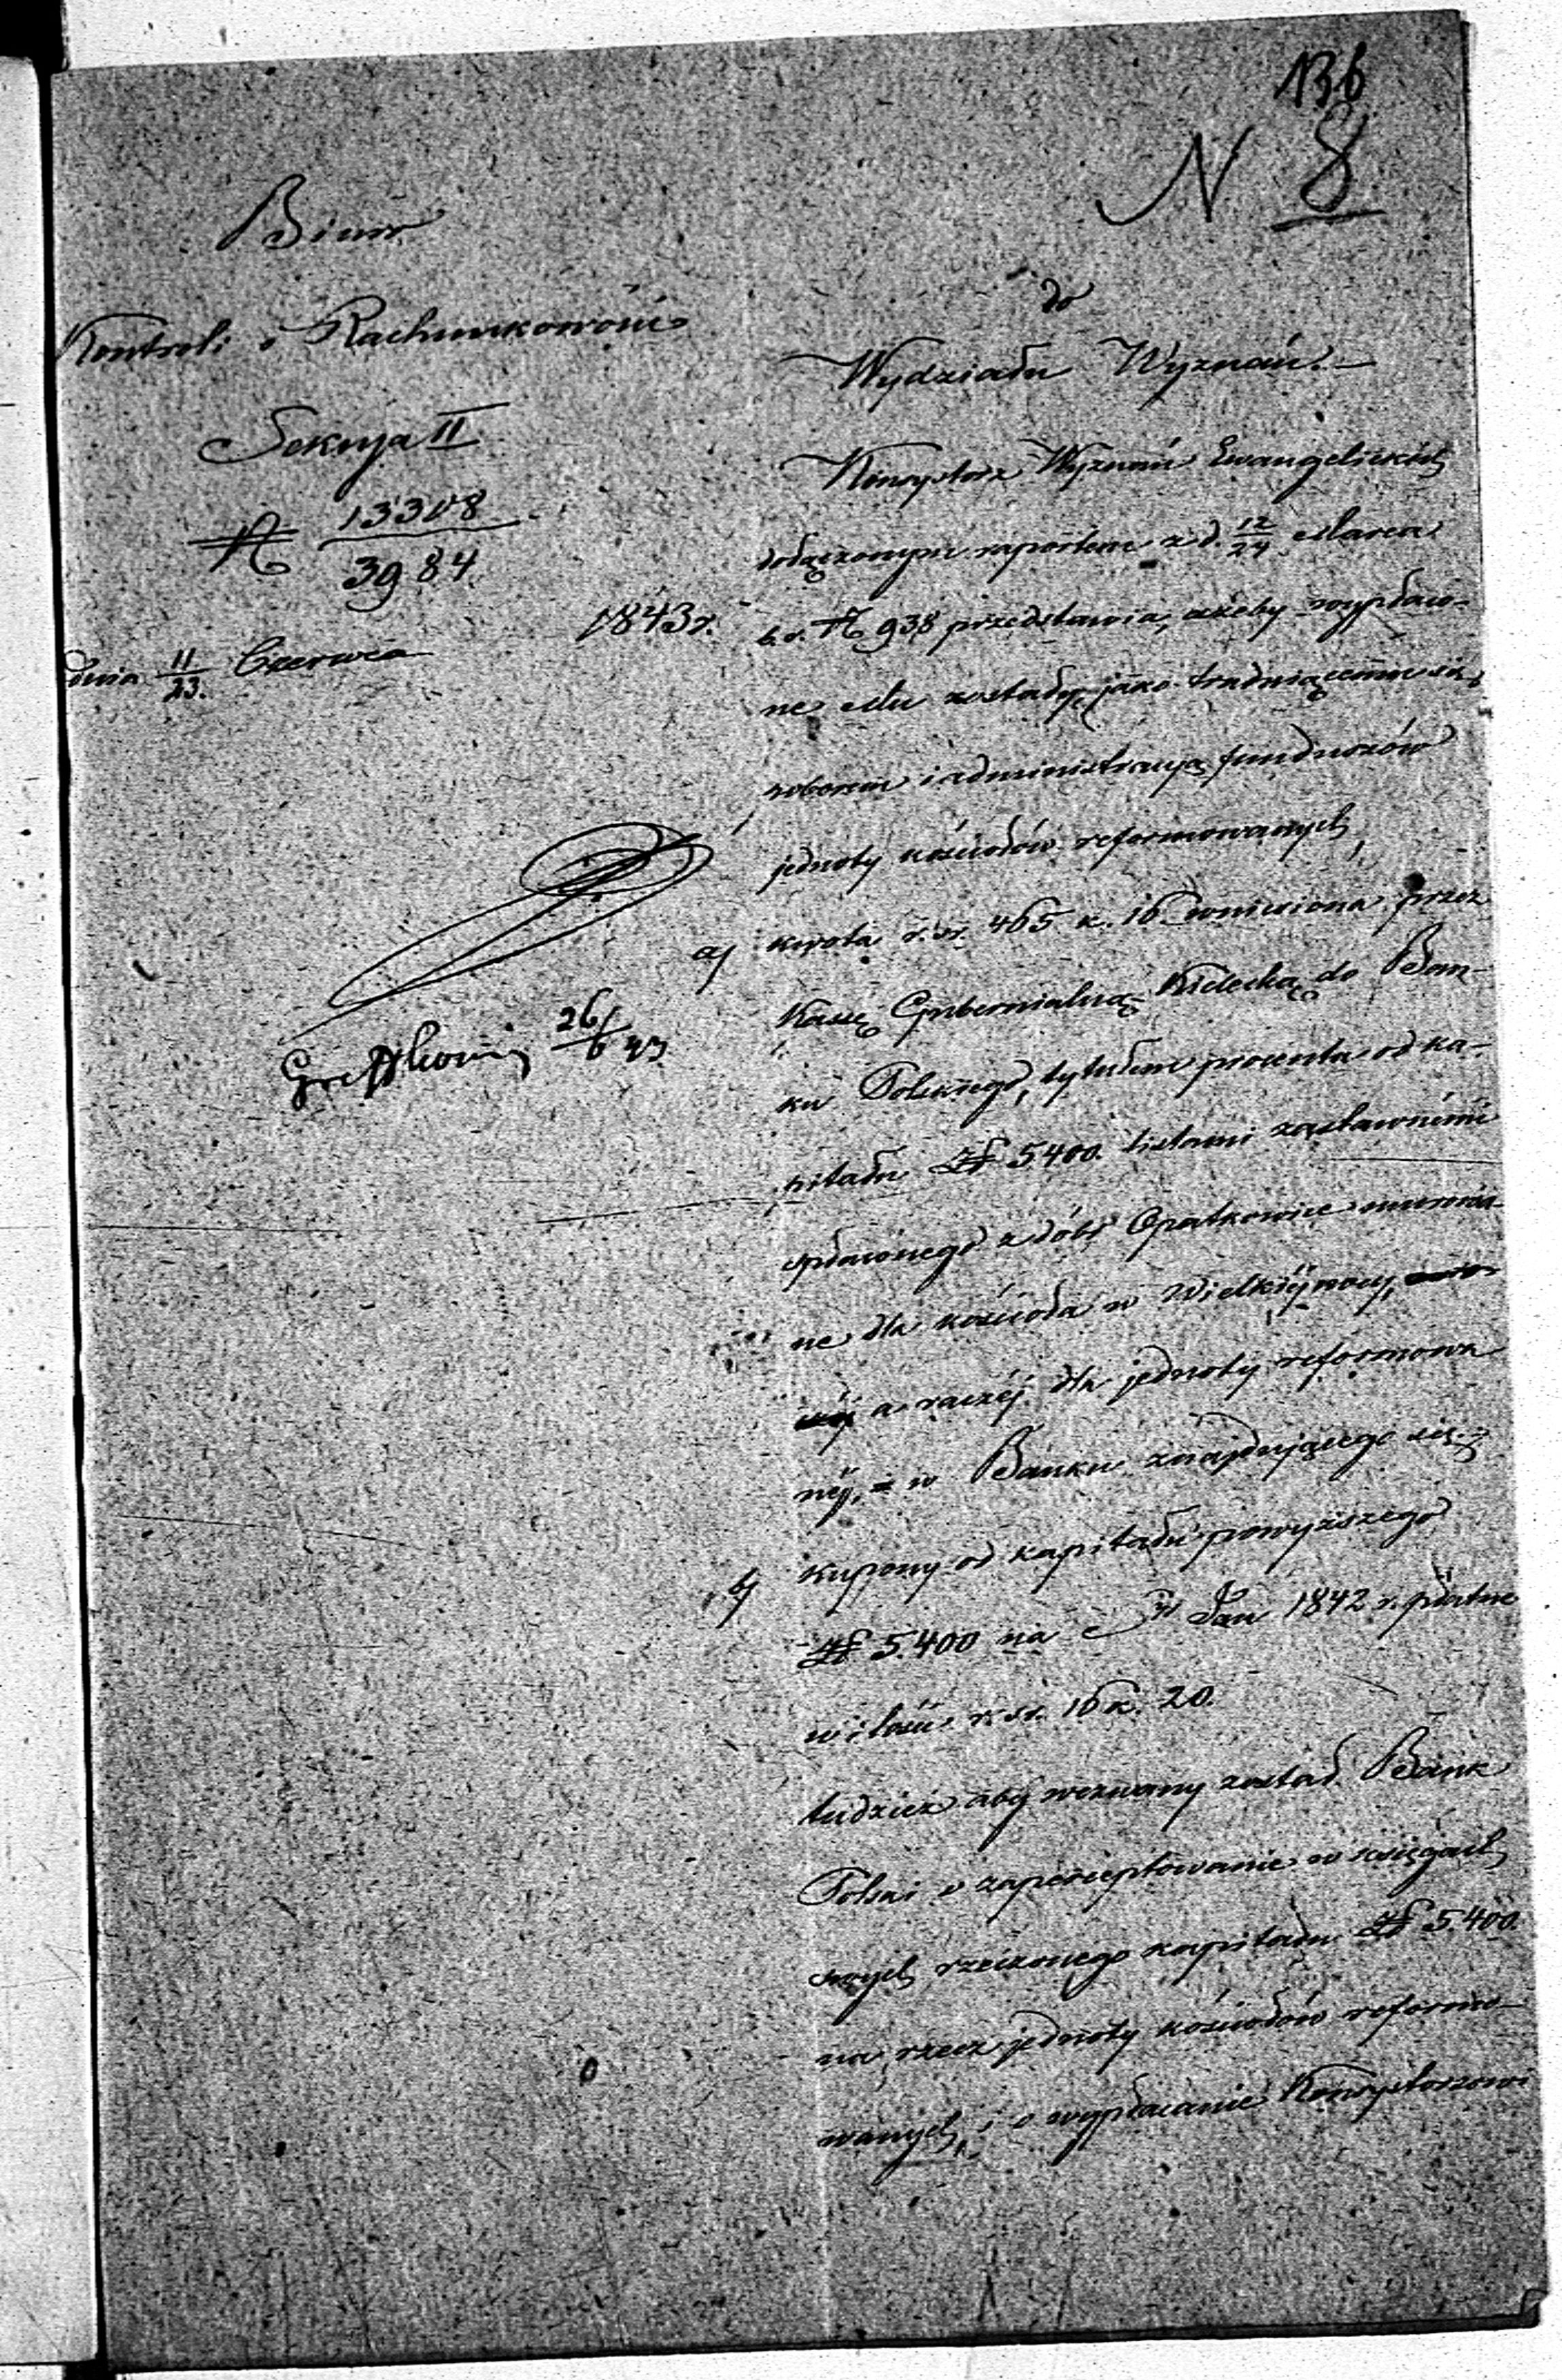 136
N 8
Biuro
Kontroli i Rachunkowości
Sekcya II
№ 13308
3984
dnia 11/23. Czerwca 1843 r.
26/6 43
do
Wydziału Wyznań. —
Konsystorz Wyznań Ewangelickich
dołączonym raportem z d. 12/24 Marca
b. r. № 938 przedstawia, ażeby wypłaco-
ne Mu zostały, jako trudniącemu się
poborem i administracyą funduszów
jednoty kościołów reformowanych,
a) kwota r. sr. 465 k. 16 wniesiona przez
Kassę Gubernialną Kielecką do Ban-
ku Polskiego, tytułem procentu od ka-
pitału Zł 5400. listami zastawnemi
spłaconego z dóbr Opatkowice murowa-
ne dla kościoła w Wielkiéjnocy,
a raczéj dla jednoty reformowa
néj, w Banku znajdującego się. —
b) kupony od kapitału powyższego
Zł 5.400 na 1842 r. płatne
w ilości r. sr. 16 k. 20.
tudzież aby wezwany został Bank
Polski o zaperceptowanie w księgach
swych rzeczonego kapitału Zł 5.400.
na rzecz jednoty kościołów reformo-
wanych, i o wypłacanie Konsystorzowi